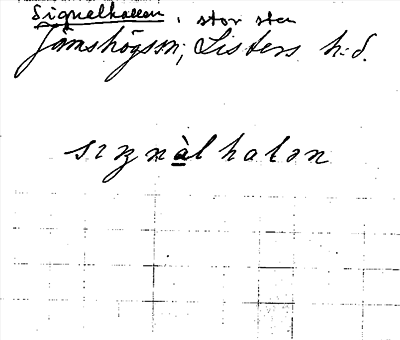 Signalhallen, stor sten
Jämshögs sn, Listers h:d.
sıgnàlhalən